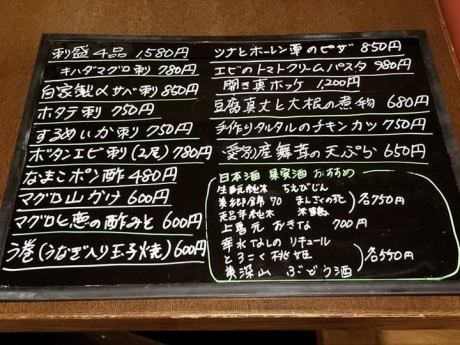 刺盛4品 1580円
キハダマグロ刺 780円
自家製〆サバ刺 850円
ホタテ刺 750円
するめいか刺 750円
ボタンエビ刺(2尾) 780円
なまこポン酢 480円
マグロ山かけ 600円
マグロと葱の酢みそ 600円
う巻(うなぎ入り玉子焼) 600円
ツナとホーレン草のピザ 850円
エビのトマトクリームパスタ 980円
開き真ホッケ 1,200円
豆腐真丈と大根の煮物 680円
手作りタルタルのチキンカツ 750円
愛別産舞茸の天ぷら 650円
日本酒 果実酒 おすすめ
生酛純米 ちえびじん
美郷錦70 まんさくの花
純米
各750円
上喜元 おきな 700円
幸水なしの リキュール
とろこく桃姫
美深山 ぶどう酒
各550円